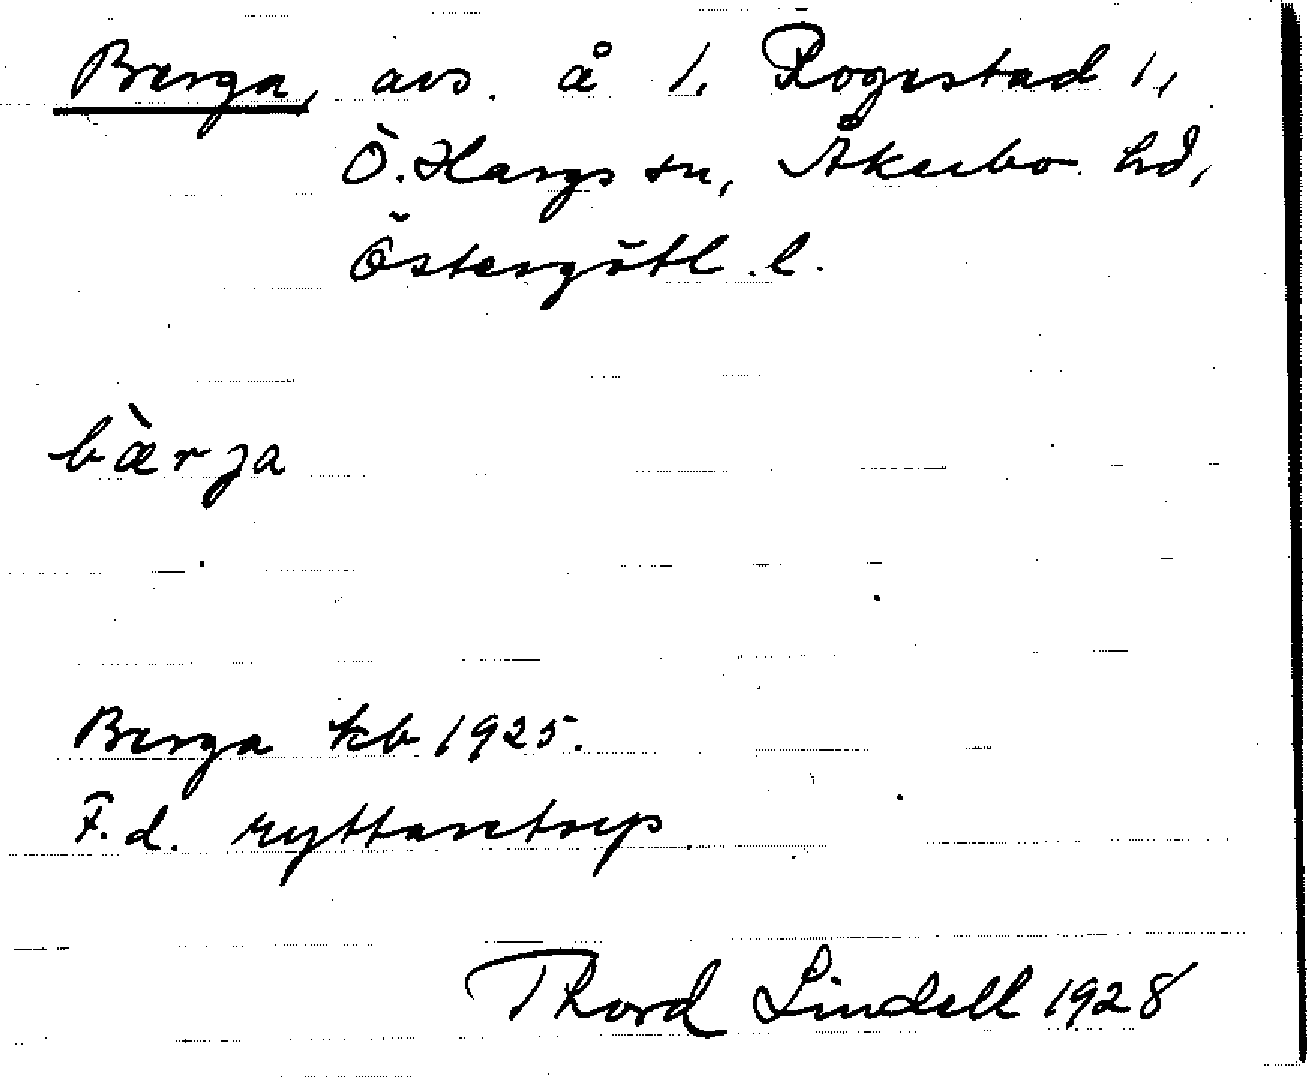 Berga, avs. å 1, Rogestad 1,
Ö. Hargs sn, Åkerbo hd,
Östergötl. l.
bær̀ja
Berga kb 1925.
F.d. ryttaretorp
Thord Lindell 1928